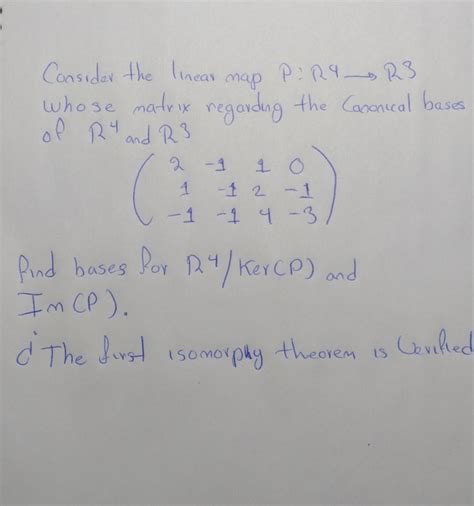 Consider the linear map P: R4 → R3
whose matrix regarding the Canonical bases
of R4 and R3
2 -1 1 0
1 -1 2 -1
-1 -1 4 -3
find bases for R4/Ker(P) and
Im(P).
¿ The first isomorphy theorem is Verified